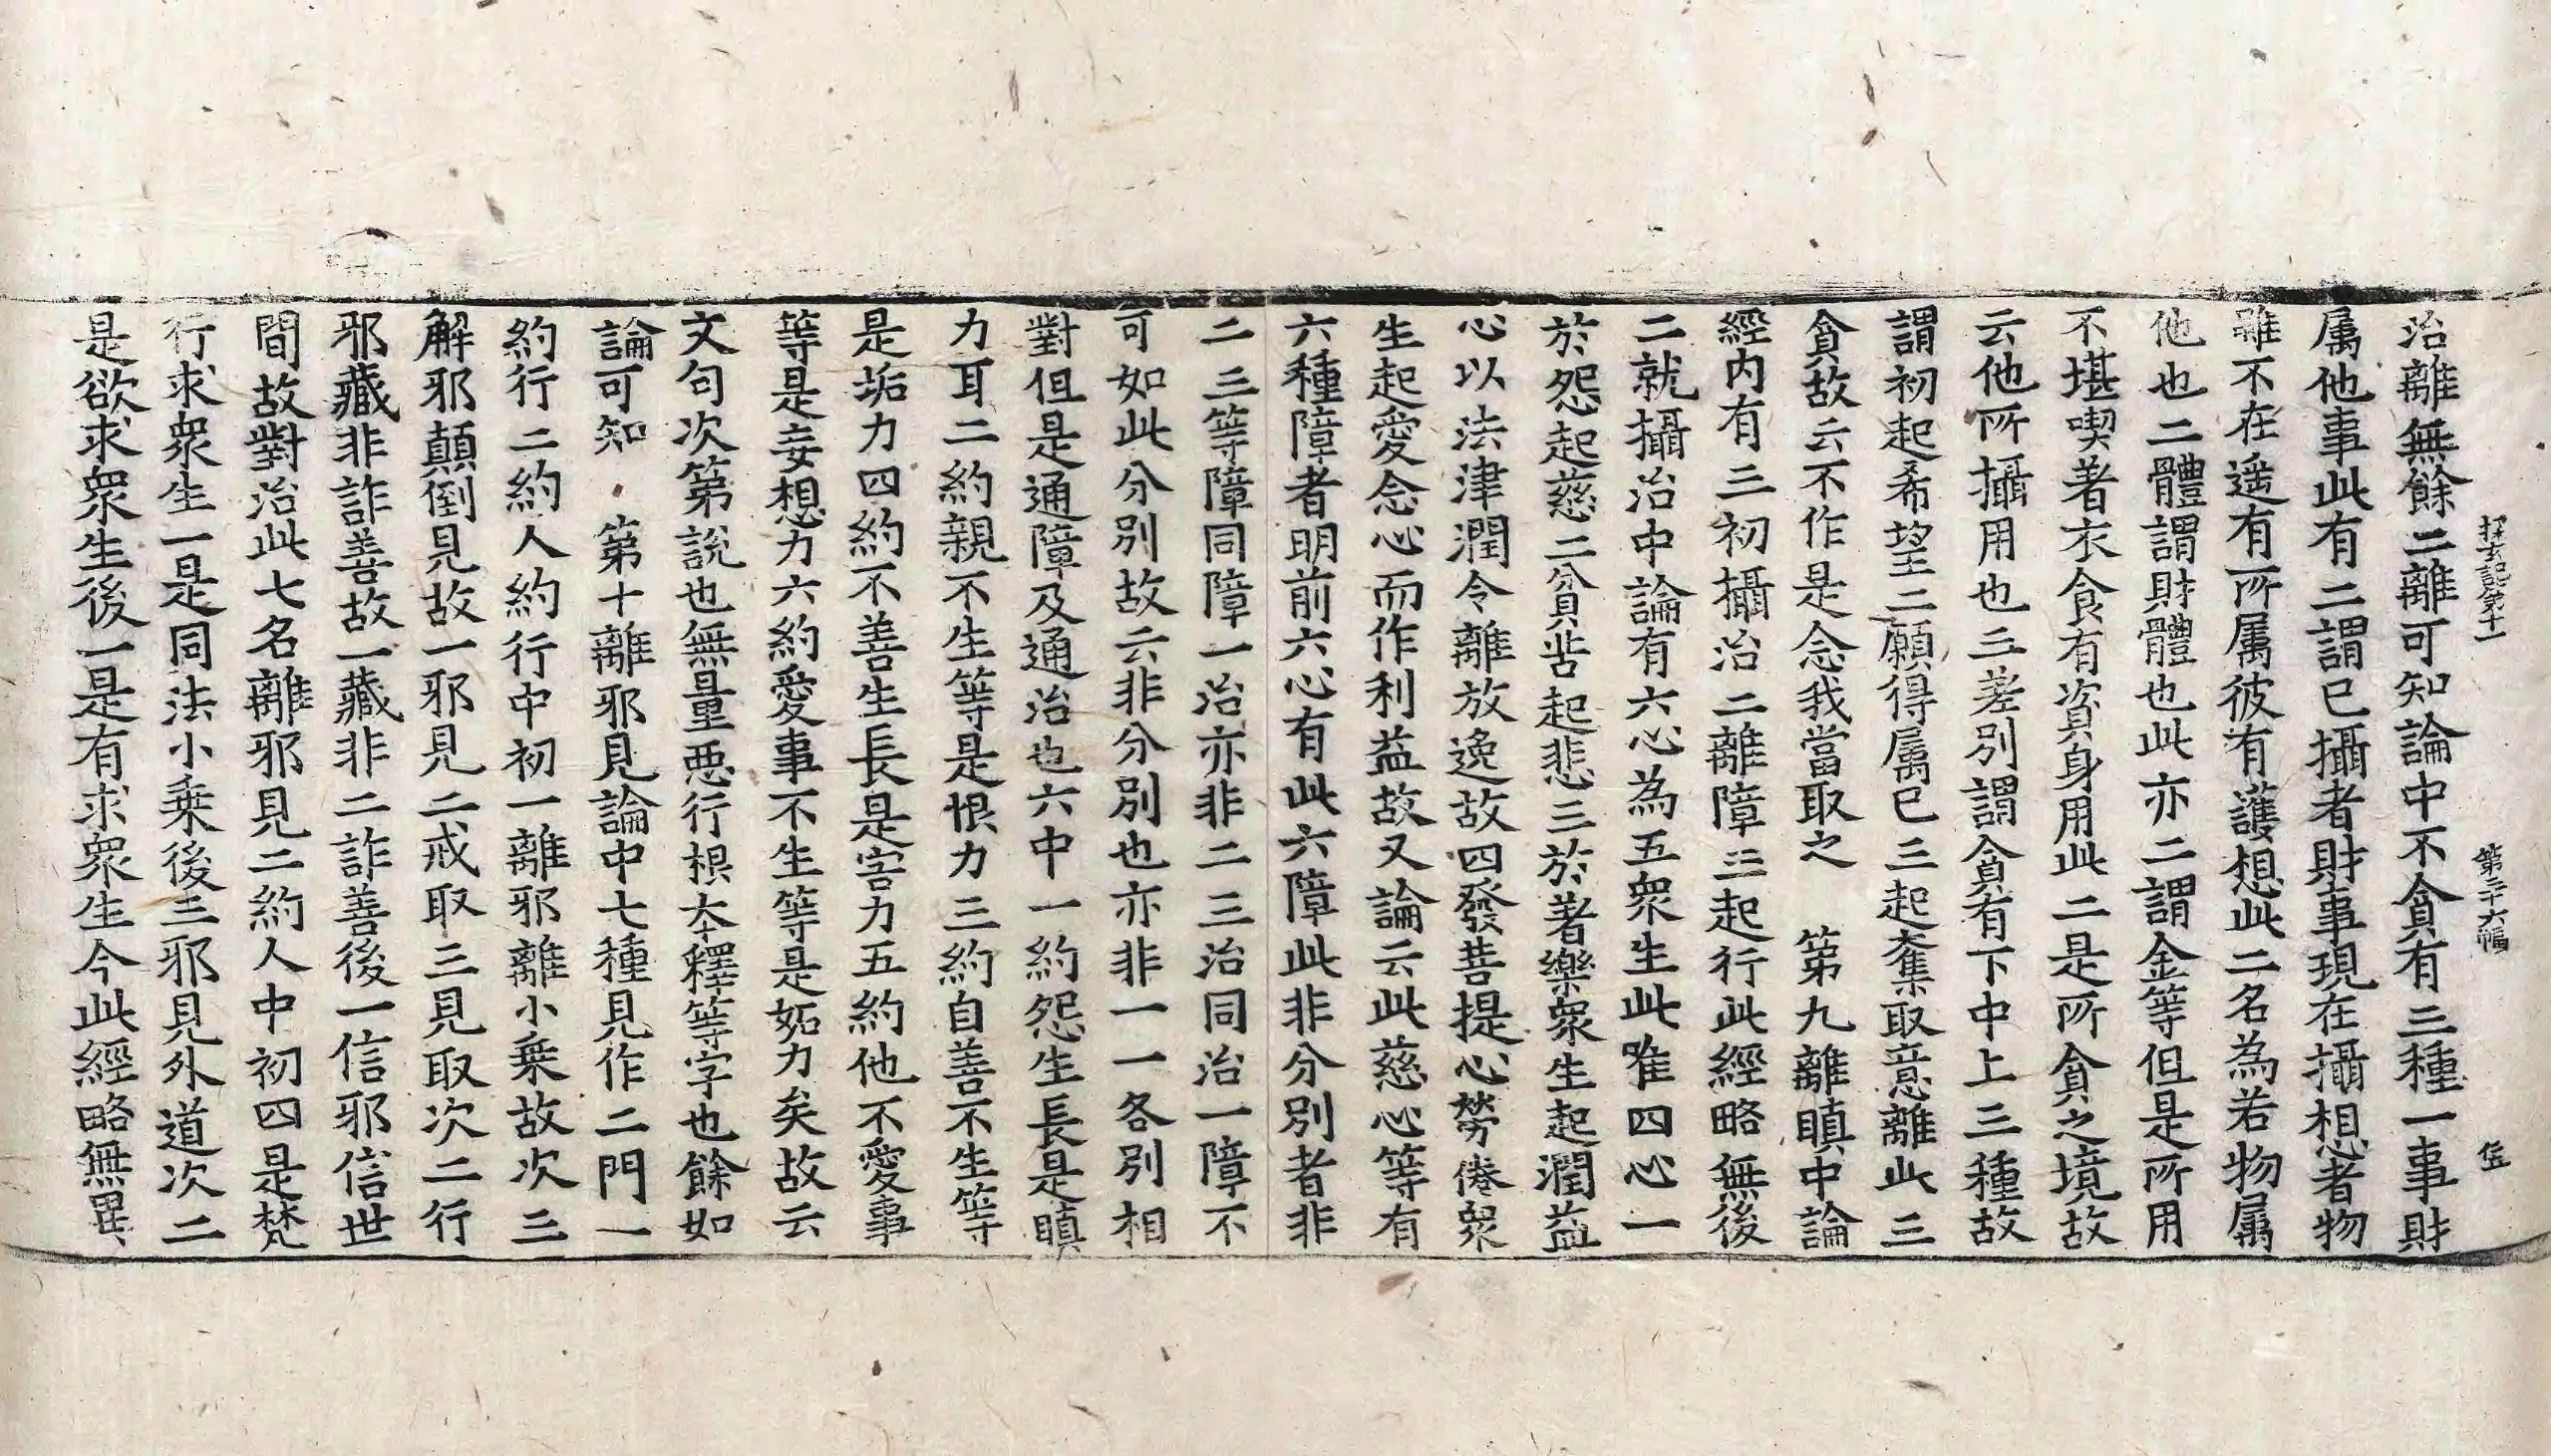 探玄記第十一 第二十六幅 伍
治離無餘二離可知論中不貪有三種一事財
属他事此有二謂已攝者財事現在攝想者物
雖不在遥有所属彼有護想此二名為若物属
他也二體謂財體也此亦二謂金等但是所用
不堪喫著衣食有資身用此二是所貪之境故
云他所攝用也三差別謂貪有下中上三種故
謂初起希望二願得属已三起奪取意離此三
貪故云不作是念我當取之 第九離瞋中論
經内有三初攝治二離障三起行此經略無後
二就攝治中論有六心為五衆生此唯四心一
於怨起慈二貧苦起悲三於著樂衆生起潤益
心以法津潤令離放逸故四發菩提心勞倦衆
生起愛念心而作利益故又論云此慈心等有
六種障者明前六心有此六障此非分別者非
二三等障同障一治亦非二三治同治一障不
可如此分別故云非分別也亦非一一各別相
對但是通障及通治也六中一約怨生長是瞋
力耳二約親不生等是恨力三約自善不生等
是垢力四約不善生長是害力五約他不愛事
等是妄想力六約愛事不生等是妬力矣故云
文句次第說也無量悪行根本釋等字也餘如
論可知 第十離邪見論中七種見作二門一
約行二約人約行中初一離邪離小乗故次三
解邪顛倒見故一邪見二戒取三見取次二行
邪藏非詐善故一藏非二詐善後一信邪信世
間故對治此七名離邪見二約人中初四是梵
行求衆生一是同法小乗後三邪見外道次二
是欲求衆生後一是有求衆生今此經略無異